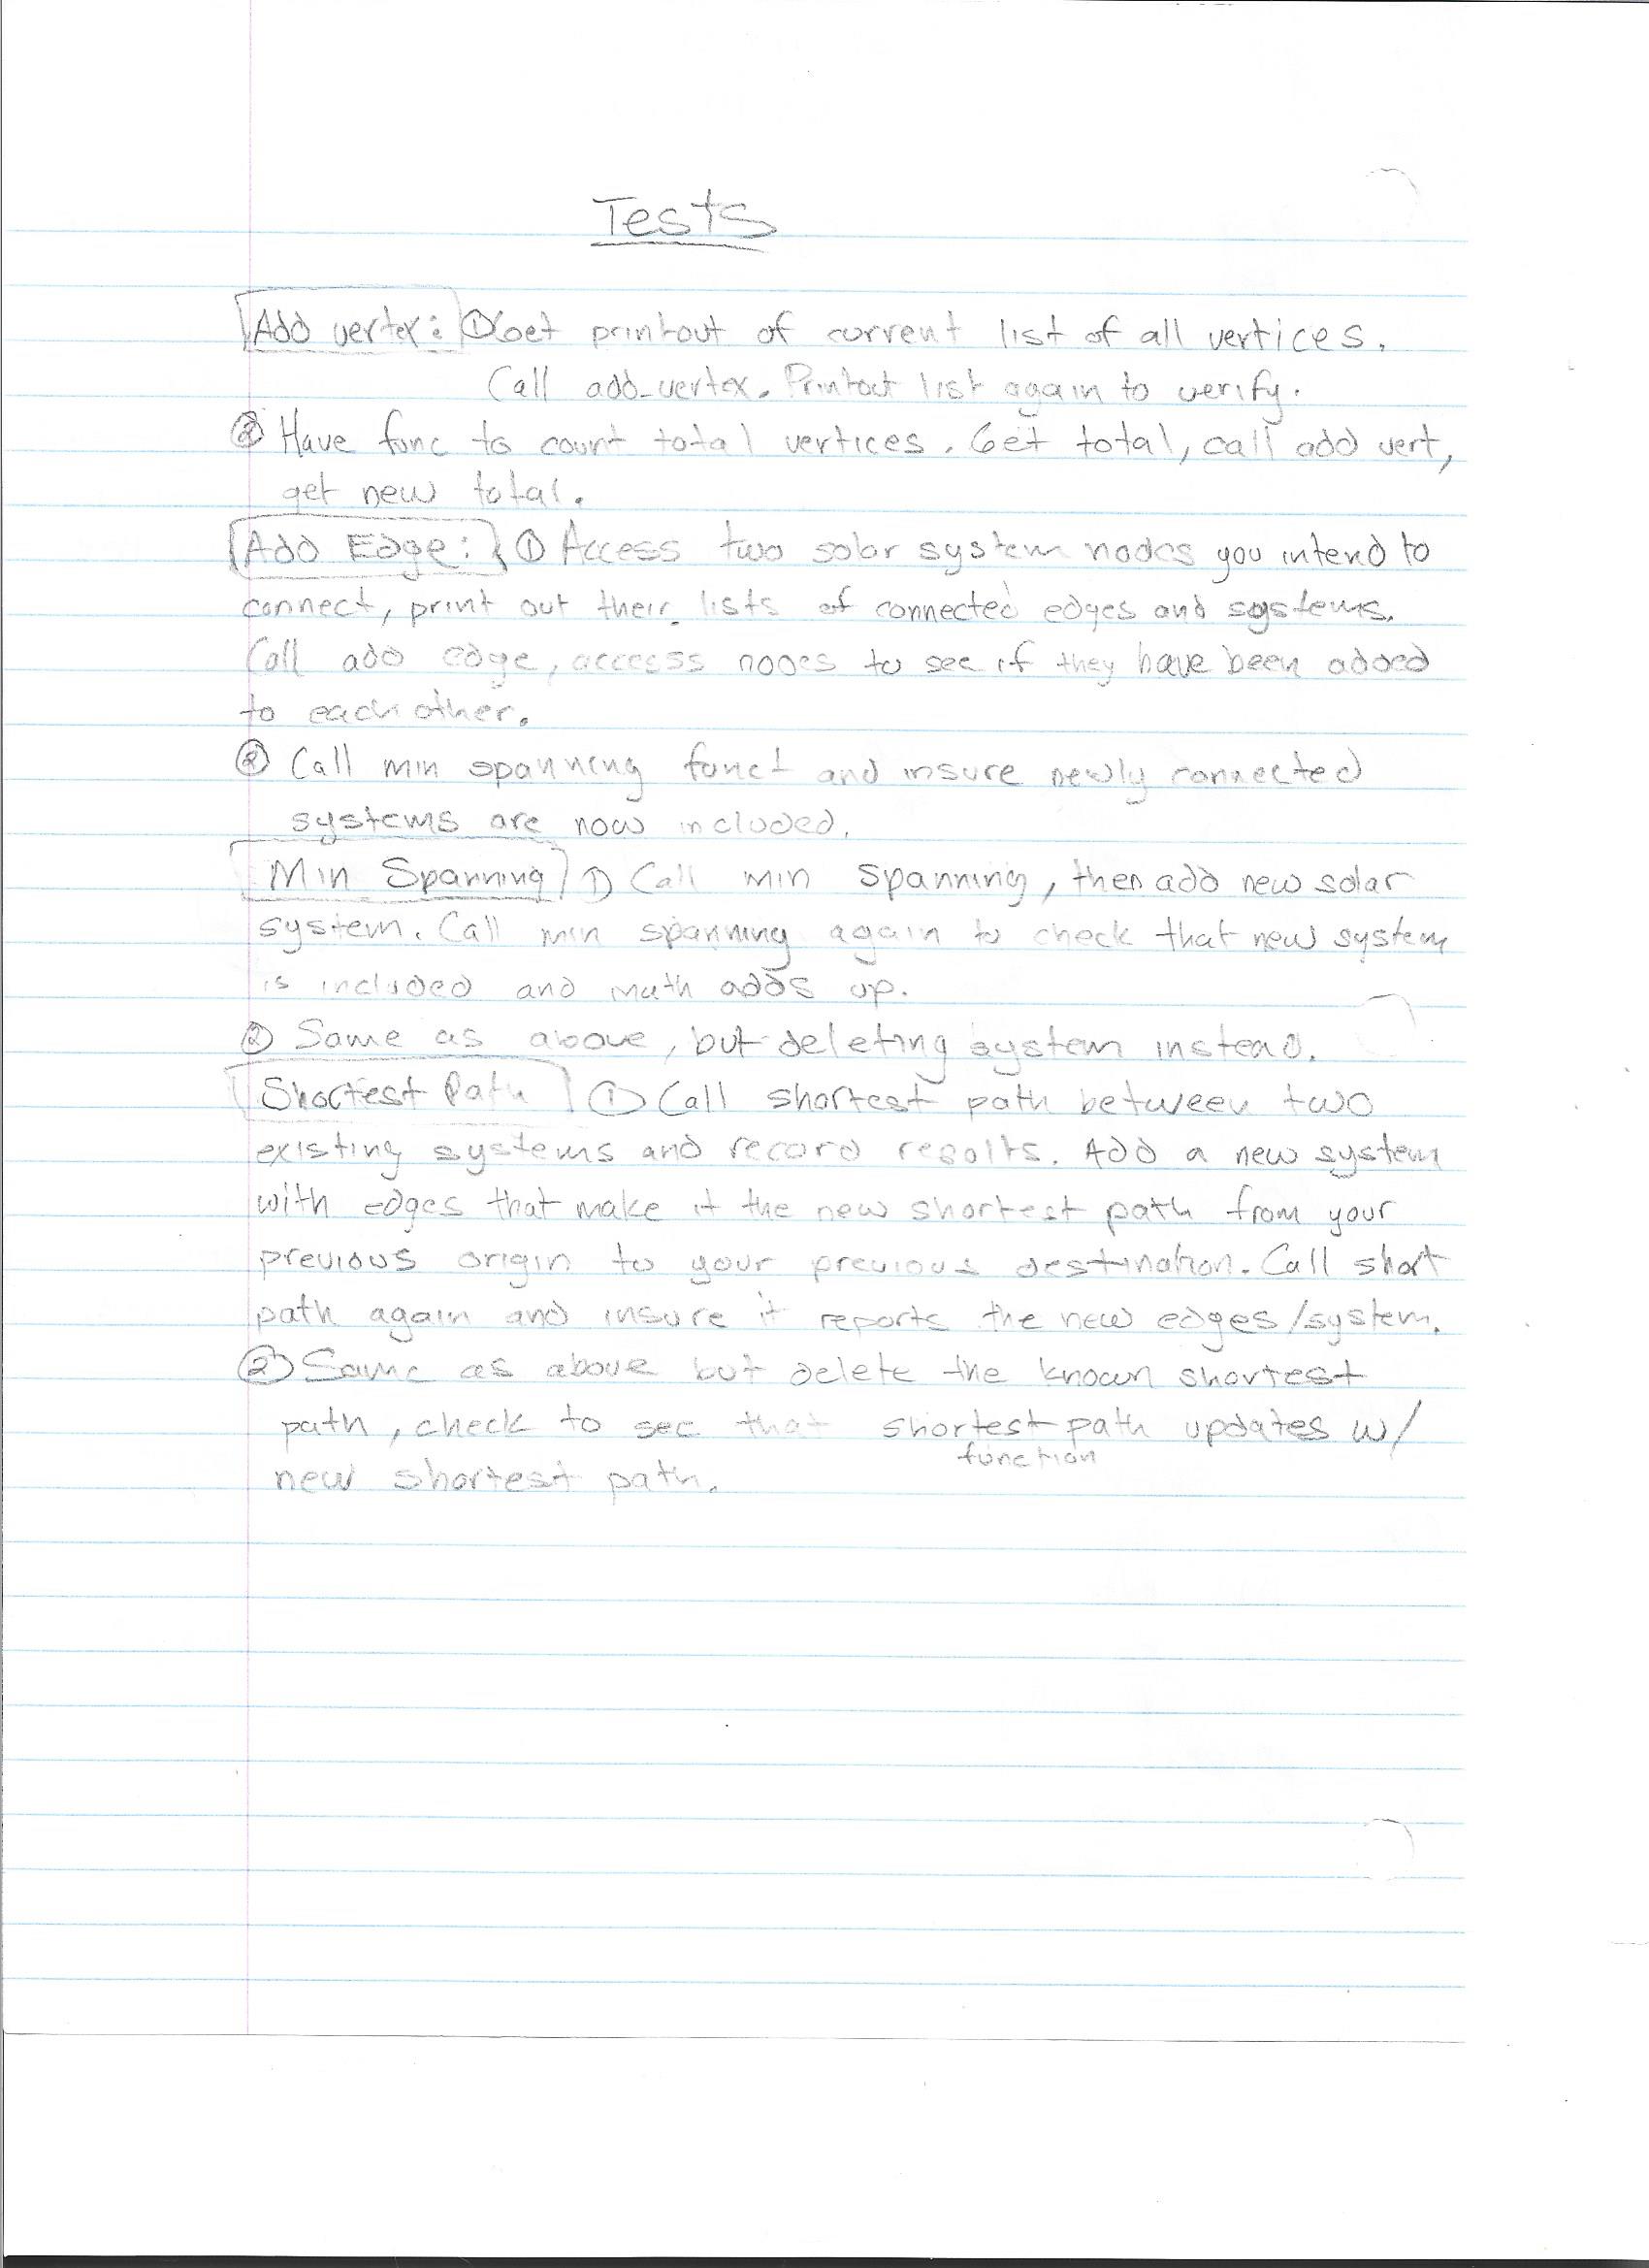 Tests
Add vertex: ① Get printout of current list of all vertices.
Call add_vertex. Printout list again to verify.
② Have func to count total vertices. Get total, call add vert,
get new total.
Add Edge: ① Access two solar system nodes you intend to
connect, print out their lists of connected edges and systems.
Call add edge, accesss nodes to see if they have been added
to each other.
② Call min spanning funct and insure newly connected
systems are now included.
Min Spanning ① Call min spanning, then add new solar
system. Call min spanning again to check that new system
is included and math adds up.
② Same as above, but deleting system instead.
Shortest Path ① Call shortest path between two
existing systems and record results. Add a new system
with edges that make it the new shortest path from your
previous origin to your previous destination. Call short
path again and insure it reports the new edges/system.
② Same as above but delete the known shortest
path, check to see that shortest path updates w/
function
new shortest path.